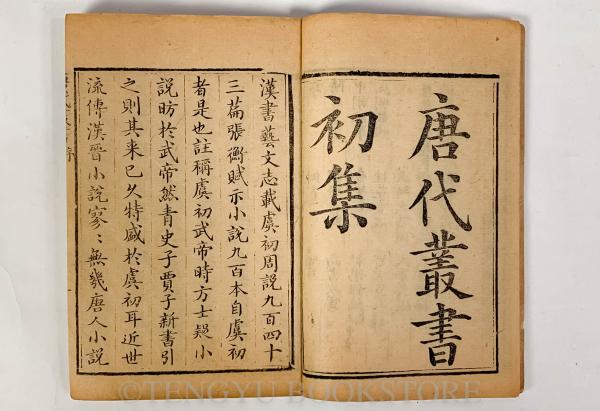 唐代叢書
初集
漢書藝文志載虞初周說九百四十
三篇張衡賦示小說九百本自虞初
者是也註稱虞初武帝時方士疑小
說昉於武帝然青史子賈子新書引
之則其来已久特盛於虞初耳近世
流傳漢晉小說寥〻無幾唐人小說
©TENGYU BOOKSTORE